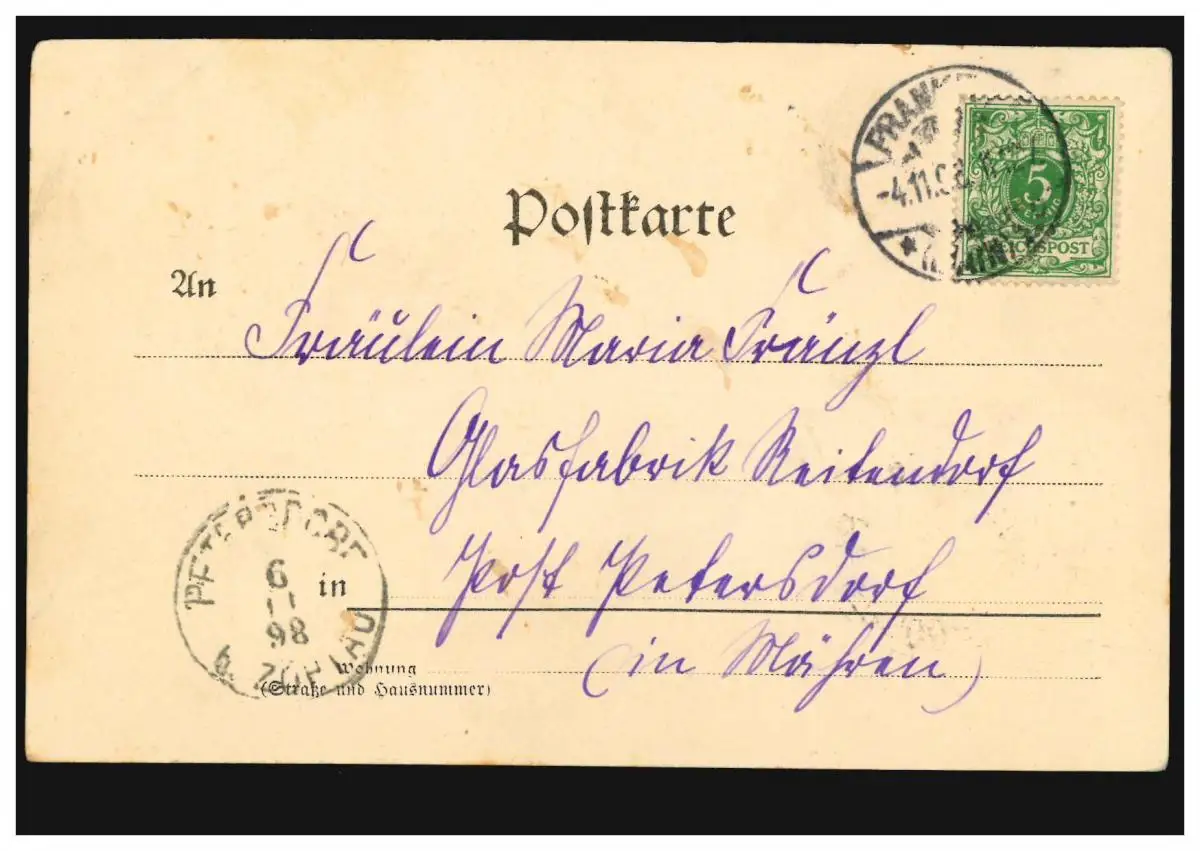 Postkarte
-4.11.98
5
REICHSPOST
An
Fräulein Maria Fränzl
Glasfabrik Reitendorf
in Post Petersdorf
(in Mähren)
Wohnung
(Straße und Hausnummer)
PETERSDORF
6
11
98
b. ZÖPTAU